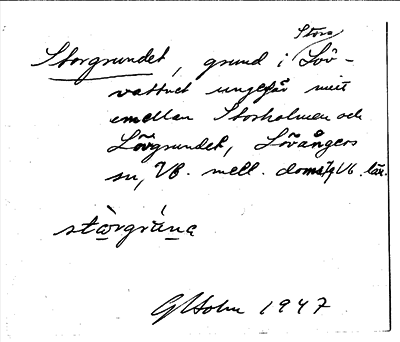 Stora
Storgrundet, grund i Löv-
vattnet ungefär mitt
emellan Storholmen och
Lövgrundet, Lövångers
sn, Vb. mell. doms., Vb. län.
stòrgrùna
G Holm 1947